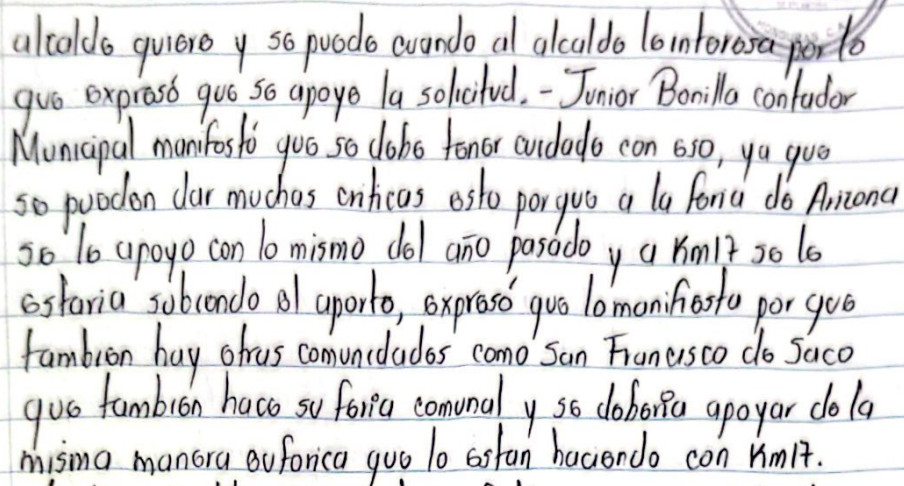 alcalde quiere y se puede cuando al alcalde le interesa por lo
que expresó que se apoye la solicitud. - Junior Bonilla contador
Municipal manifestó que se debe tener cuidado con eso, ya que
se pueden dar muchas criticas esto porque a la feria de Arizona
se le apoyo con lo mismo del año pasado y a Km17 se le
estaria subiendo el aporte, expresó que lo manifiesta por que
tambien hay otras comunidades como San Francisco de Saco
que tambien hace su feria comunal y se deberia apoyar de la
misma manera euforica que lo estan haciendo con Km17.